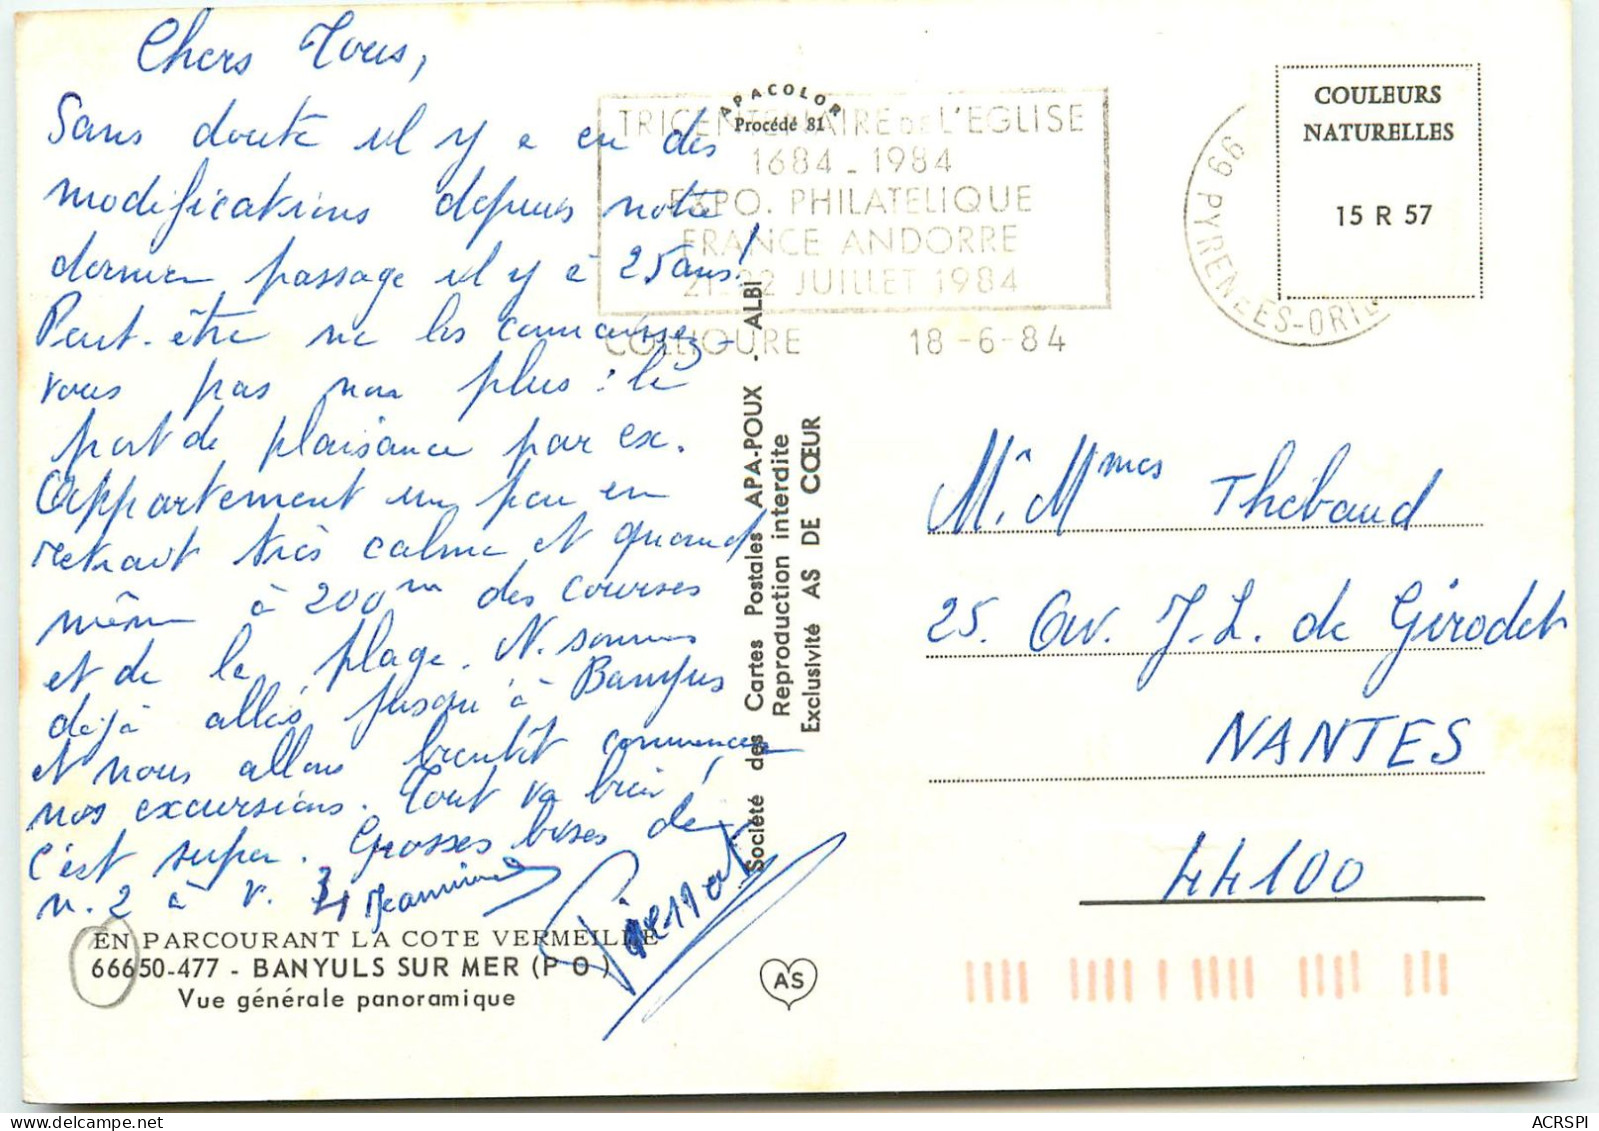 Chers Tous,
Sans doute il y a eu des
modifications depuis notre
dernier passage il y a 25 ans!
Peut-être ne les connaissez-
vous pas non plus : le
port de plaisance par ex.
Appartement un peu en
retrait très calme et quand
même à 200m des courses
et de la plage. N. sommes
déjà allés jusqu'à Banyuls
et nous allons bientôt commencer
nos excursions. Tout va bien,
c'est super. Grosses bises de
n. 2 à v. 4 Jeannine
Pierrot
EN PARCOURANT LA COTE VERMEILLE
66650-477 - BANYULS SUR MER (P O)
Vue générale panoramique
APACOLOR
Procédé 81
TRICENTENAIRE DE L'EGLISE
1684 - 1984
EXPO. PHILATELIQUE
FRANCE ANDORRE
21-22 JUILLET 1984
COLLIOURE 18-6-84
66 PYRENEES-ORIE
COULEURS
NATURELLES
15 R 57
Société des Cartes Postales APA-POUX - ALBI
Reproduction interdite
Exclusivité AS DE CŒUR
AS
M. Mmes Thébaud
25. Av. J.L. de Girodet
NANTES
44100
ACRSPI